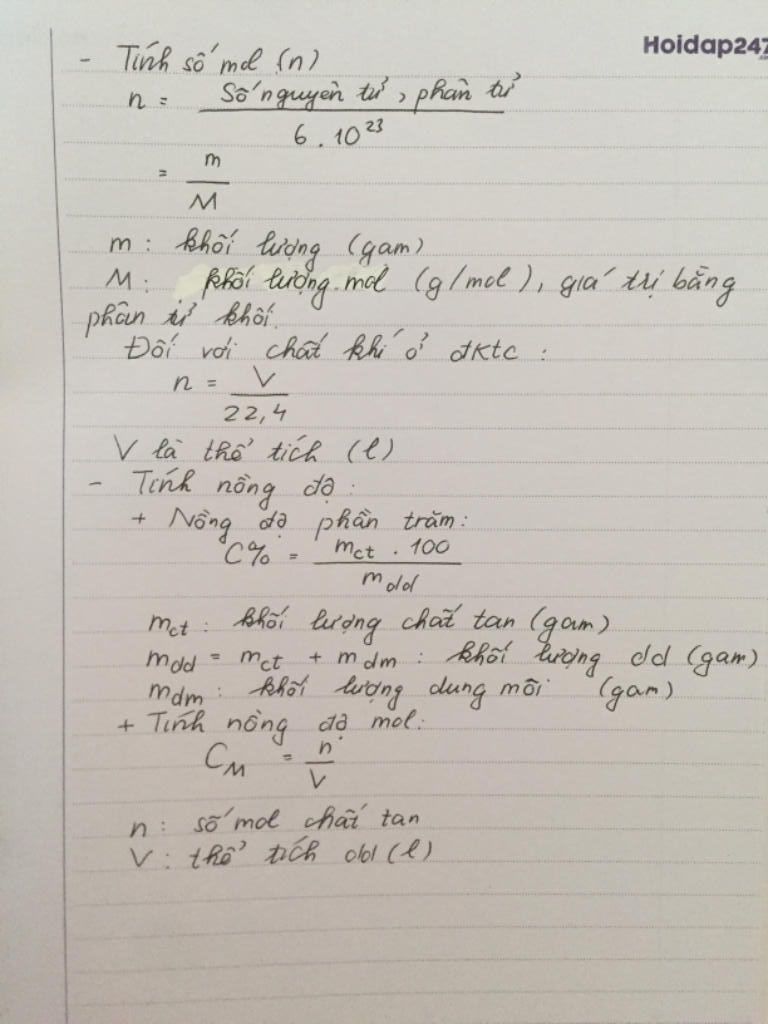 Hoidap247
.com
- Tính số mol (n)
n = Số nguyên tử, phân tử / 6 . 10²³
= m / M
m : khối lượng (gam)
M : khối lượng mol (g/mol), giá trị bằng
phân tử khối.
Đối với chất khí ở đktc :
n = V / 22,4
V là thể tích (l)
- Tính nồng độ :
+ Nồng độ phần trăm :
C% = mct . 100 / mdd
mct : khối lượng chất tan (gam)
mdd = mct + mdm : khối lượng dd (gam)
mdm : khối lượng dung môi (gam)
+ Tính nồng độ mol :
CM = n / V
n : số mol chất tan
V : thể tích dd (l)